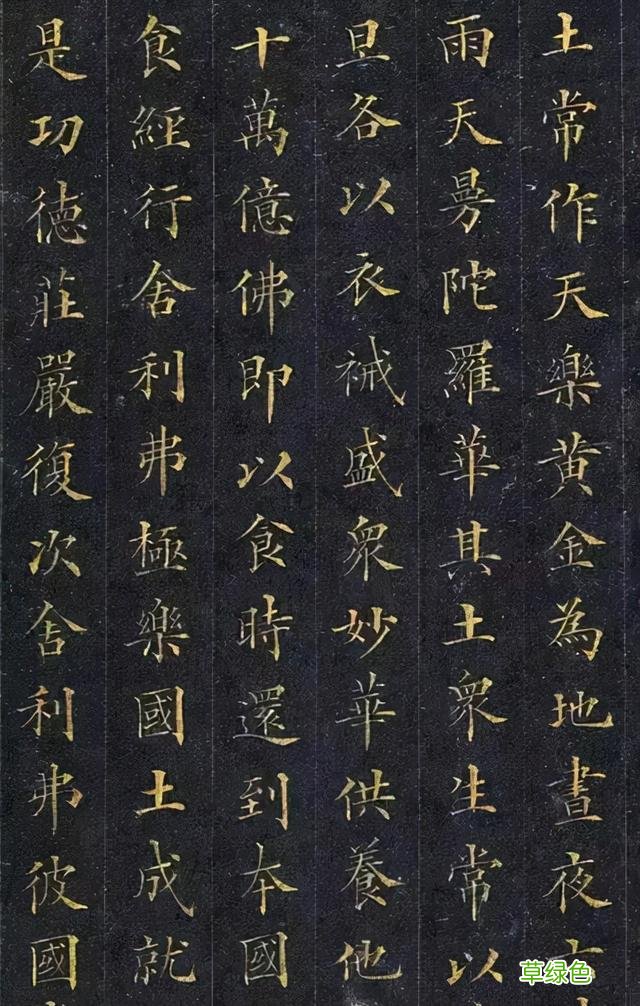 土常作天樂黄金為地晝夜六
雨天曼陀羅華其土衆生常以
旦各以衣裓盛衆妙華供養他
十萬億佛即以食時還到本國
食經行舍利弗極樂國土成就
是功徳莊嚴復次舍利弗彼國
草绿色